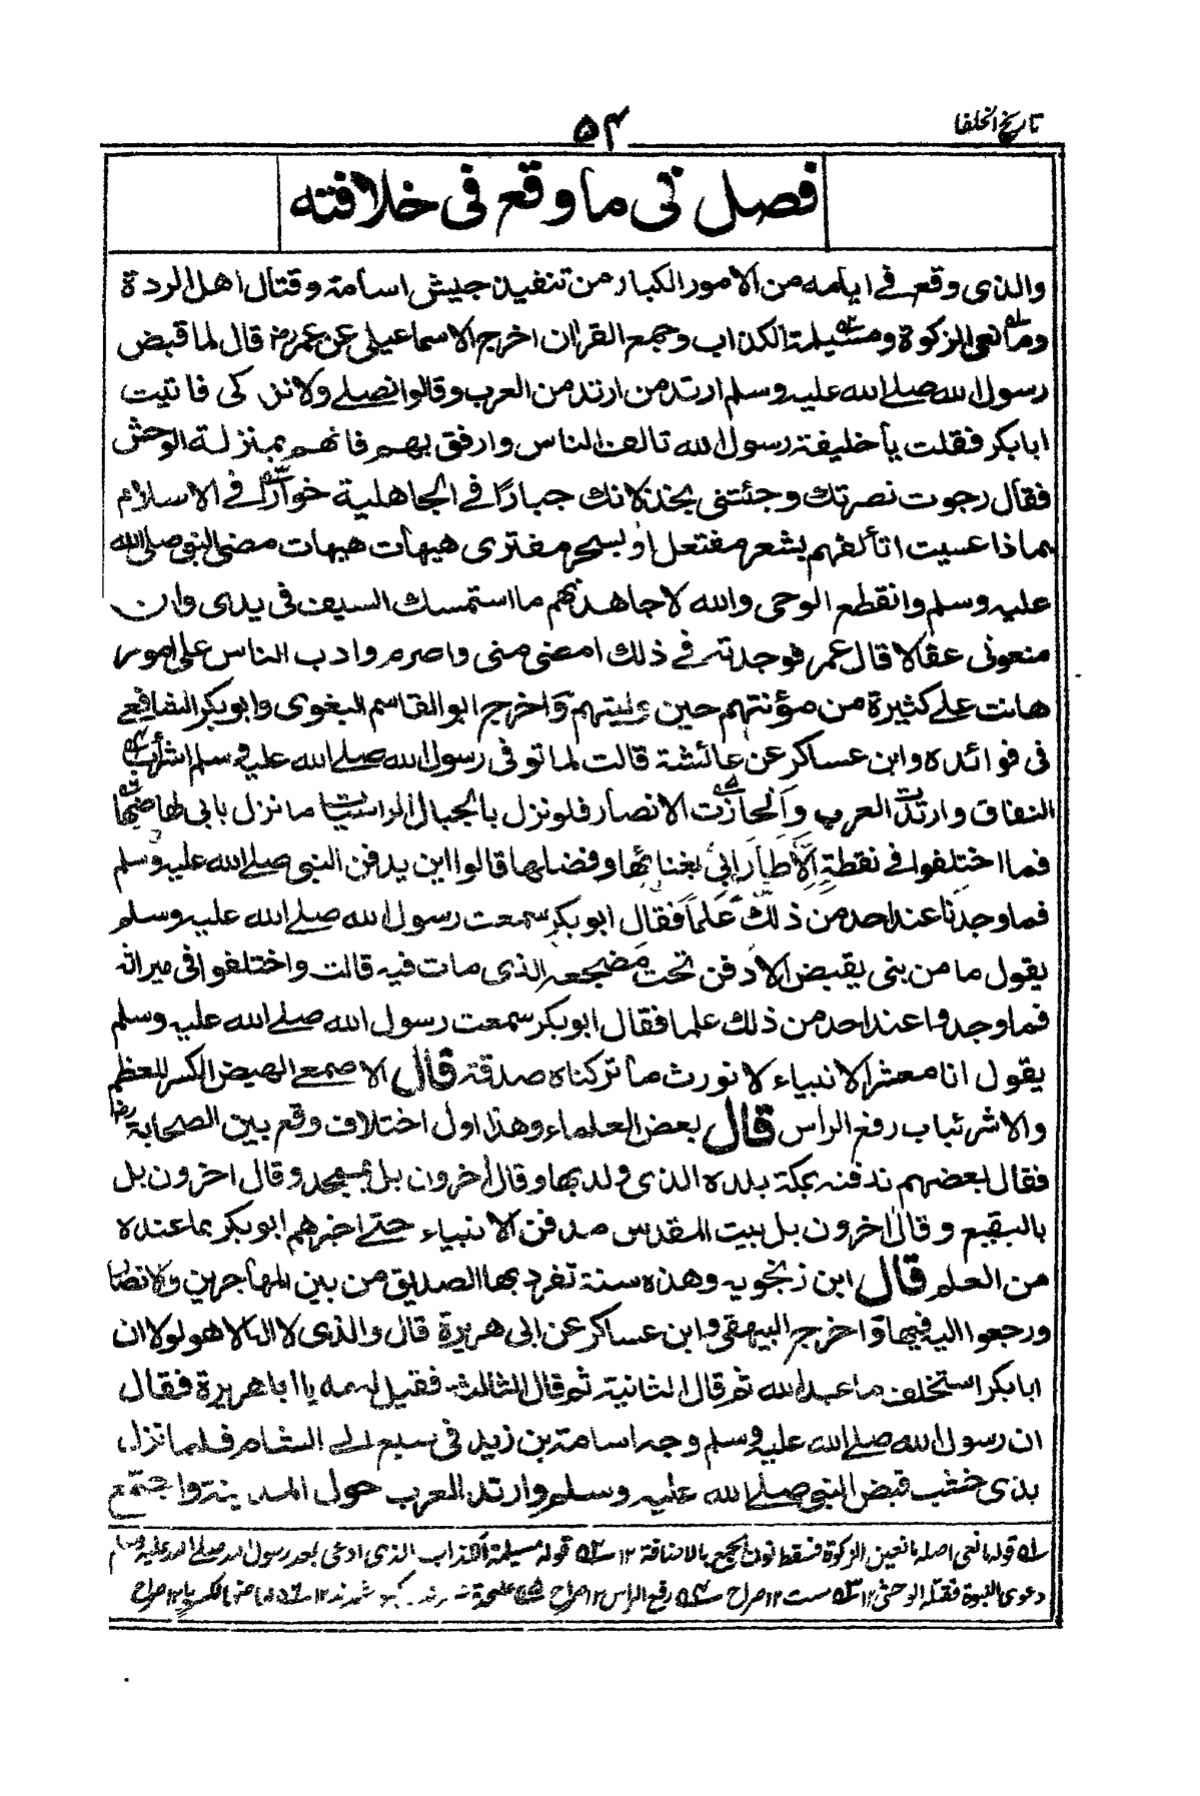 تاريخ الخلفا
۵۴
فصل في ما وقع في خلافته
والذي وقع في ايامه من الامور الكبار من تنفيذ جيش اسامة وقتال اهل الردة
ومانعي الزكوة ومسيلمة الكذاب وجمع القران اخرج الاسماعيلي عن عمر رضـ قال لما قبض
رسول الله صلى الله عليه وسلم ارتد من ارتد من العرب وقالوا نصلي ولا نزكي فاتيت
ابابكر فقلت يا خليفة رسول الله تالف الناس وارفق بهم فانهم بمنزلة الوحش
فقال رجوت نصرتك وجئتني بخذلانك جبارًا في الجاهلية خوارًا في الاسلام
بماذا عسيت اتألفهم بشعر مفتعل او بسحر مفترى هيهات هيهات مضى النبي صلى الله
عليه وسلم وانقطع الوحي والله لاجاهدنهم ما استمسك السيف في يدي وان
منعوني عقالا قال عمر فوجدته في ذلك امضى مني واصرم وادب الناس على امور
هانت على كثيرة من مؤنتهم حين وليتهم واخرج ابو القاسم البغوي وابو بكر الشافعي
في فوائده وابن عساكر عن عائشة قالت لما توفي رسول الله صلى الله عليه وسلم اشرأب
النفاق وارتدت العرب وانحازت الانصار فلو نزل بالجبال الراسيات ما نزل بابي لهاضها
فما اختلفوا في نقطة الا طار ابي بغنائها وفضلها قالوا اين يدفن النبي صلى الله عليه وسلم
فما وجدنا عند احد من ذلك علما فقال ابو بكر سمعت رسول الله صلى الله عليه وسلم
يقول ما من نبي يقبض الا دفن تحت مضجعه الذي مات فيه قالت واختلفوا في ميراثه
فما وجدوا عند احد من ذلك علما فقال ابو بكر سمعت رسول الله صلى الله عليه وسلم
يقول انا معشر الانبياء لا نورث ما تركناه صدقة قال الاصمعي الهيض الكسر للعظم
والاشرئباب رفع الراس قال بعض العلماء وهذا اول اختلاف وقع بين الصحابة رضـ
فقال بعضهم ندفنه بمكة بلده الذي ولد بها وقال اخرون بل بمسجده وقال اخرون بل
بالبقيع وقال اخرون بل ببيت المقدس مدفن الانبياء حتى اخبرهم ابو بكر بما عنده
من العلم قال ابن زنجويه وهذه سنة تفرد بها الصديق من بين المهاجرين والانصار
ورجعوا اليه فيها واخرج البيهقي وابن عساكر عن ابي هريرة قال والذي لا اله الا هو لولا ان
ابابكر استخلف ما عبد الله ثم قال الثانية ثم قال الثالثة فقيل له مه يا ابا هريرة فقال
ان رسول الله صلى الله عليه وسلم وجه اسامة بن زيد في سبع الى الشام فلما نزل
بذي خشب قبض النبي صلى الله عليه وسلم وارتد العرب حول المدينة واجتمع
۱ قوله مانعي اصله مانعين الزكوة فسقط نون الجمع بالاضافة ۱۲ ۲ قوله مسيلمة الكذاب الذي ادعى بعد رسول الله صلى الله عليه وسلم
دعوى النبوة فقتله الوحشي ۱۲ ۳ سست ۱۲ صراح ۴ رفع الراس ۱۲ صراح ۵ شدند ۱۲ ۱۲ صراح